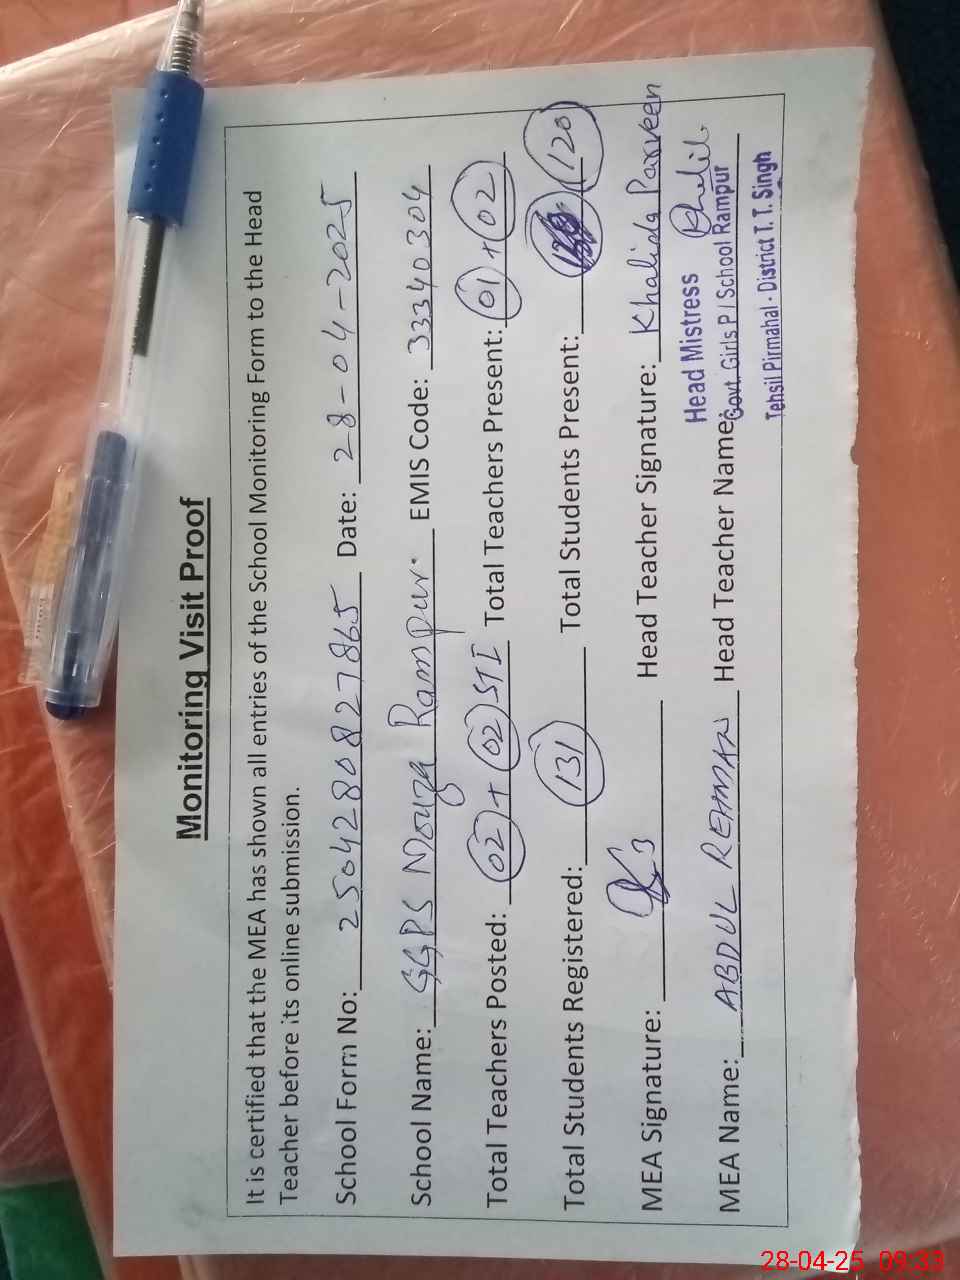 Monitoring Visit Proof
It is certified that the MEA has shown all entries of the School Monitoring Form to the Head
Teacher before its online submission.
School Form No: 250428082 7865 Date: 28-04-2025
School Name: GGPS Mouza Rampur. EMIS Code: 33340304
Total Teachers Posted: 02 + 02 STI Total Teachers Present: 01 + 02
Total Students Registered: 131 Total Students Present: 120
MEA Signature: Head Teacher Signature: Khalida Parveen
Head Mistress
MEA Name: ABDUL REHMAN Head Teacher Name: Govt. Girls P / School Rampur
Tehsil Pirmahal - District T.T. Singh
28-04-25 09:33